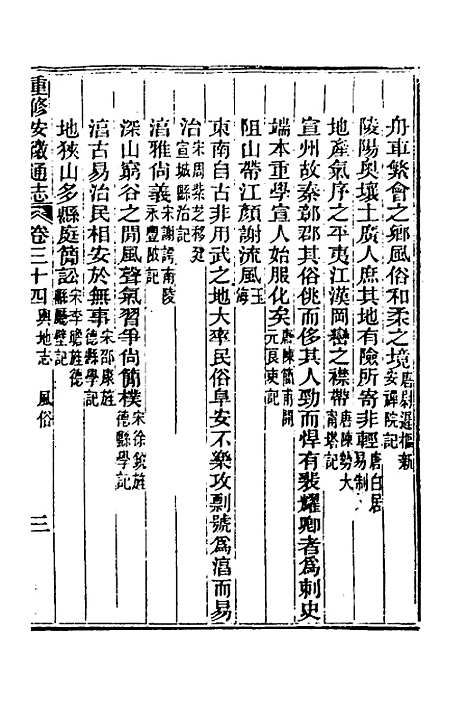 舟車繁會之鄉風俗和柔之境唐尉遲樞新安禪院記
陵陽奥壤土廣人庶其地有險所寄非輕唐白居易制
地產氣序之平夷江漢岡巒之襟帶唐陳勢大甯塔記
宣州故秦鄣郡其俗佻而侈其人勁而悍有裴耀卿者為刺史
端本重學宣人始服化矣唐陳簡甫開元以來良吏記
阻山帶江顏謝流風玉海
東南自古非用武之地大率民俗阜安不樂攻剽號為湻而易
治宋周紫芝移建宣城縣治記
湻雅尚義宋謝諤南陵永豐陂記
深山窮谷之閒風聲氣習爭尚簡樸宋徐筬旌德縣學記
湻古易治民相安於無事宋邵康旌德縣學記
地狹山多縣庭簡訟宋李瞻旌德縣廳壁記
重修安徽通志 卷三十四 輿地志 風俗 三